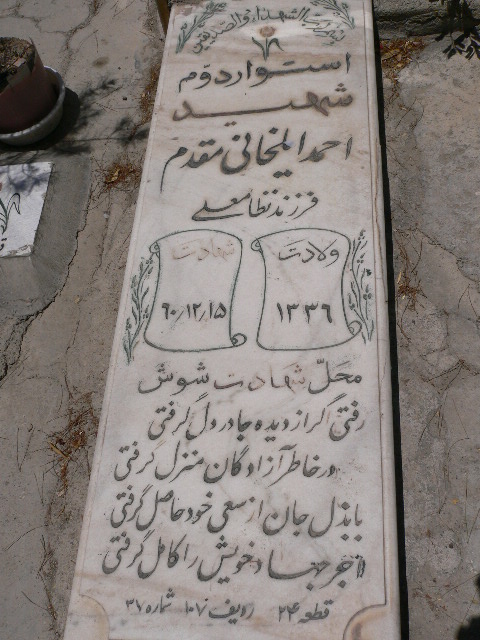 بسم رب الشهداء و الصدیقین
استوار دوّم
شهید
احمد ایلخانی مقدم
فرزند نظامعلی
ولادت
۱۳۳۶
شهادت
۶۰/۱۲/۱۵
محلّ شهادت شوش
رفتی اگر از دیده جا در دل گرفتی
در خاطر آزادگان منزل گرفتی
با بذل جان از سعی خود حاصل گرفتی
اجر جهاد خویش را کامل گرفتی
قطعه ۲۴ ردیف ۱۰۷ شماره ۳۷